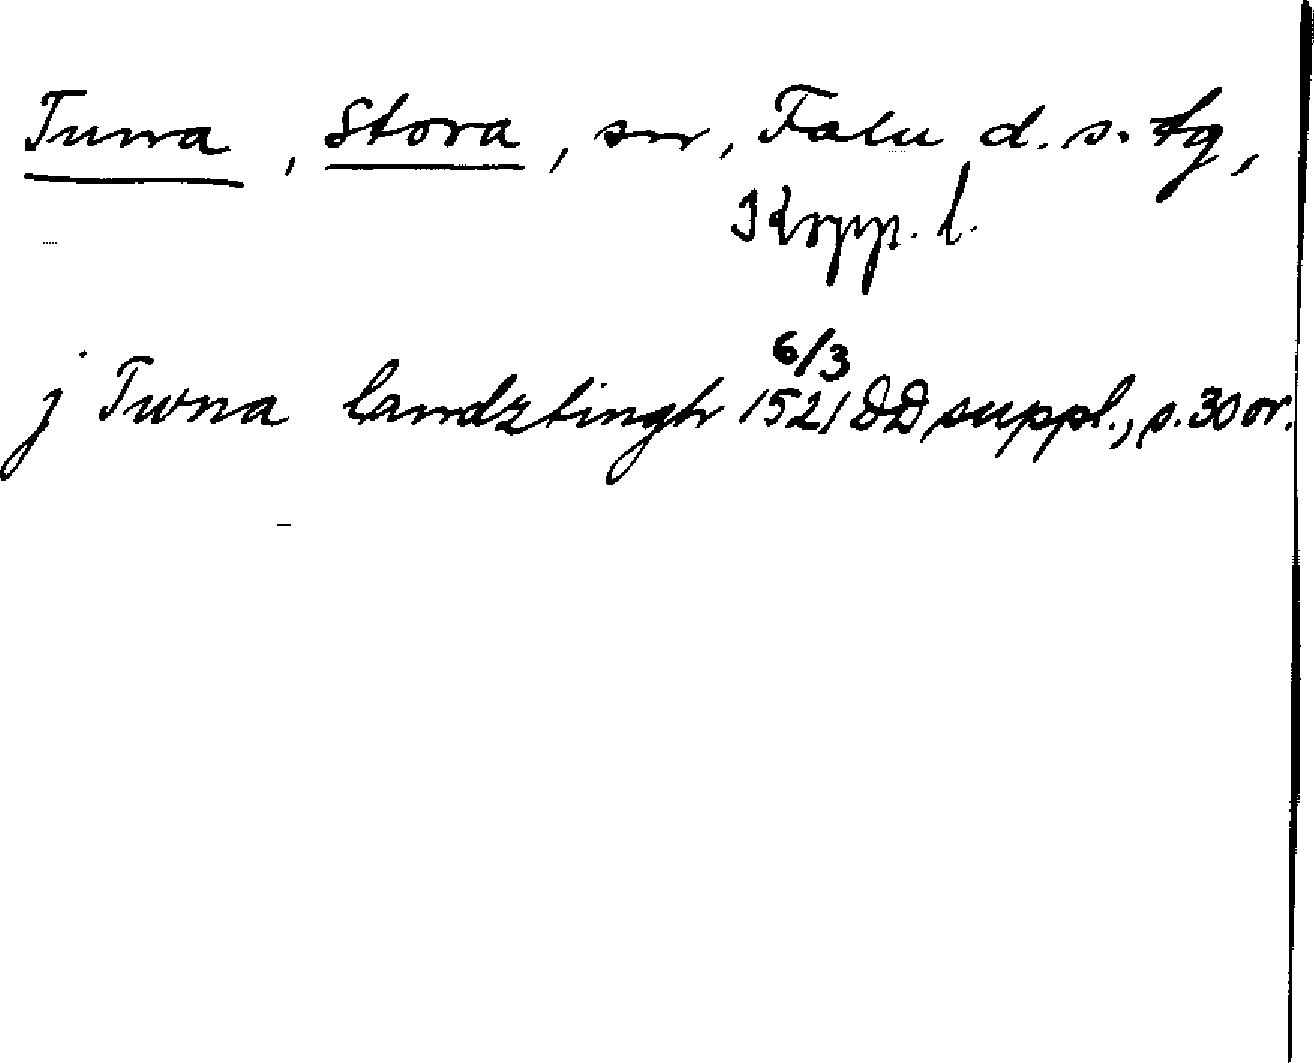 Tuna, Stora, sn, Falu d.s. tg,
Kopp. l.
j Twna landztingh 6/3 1521 DD suppl., s. 30 or.